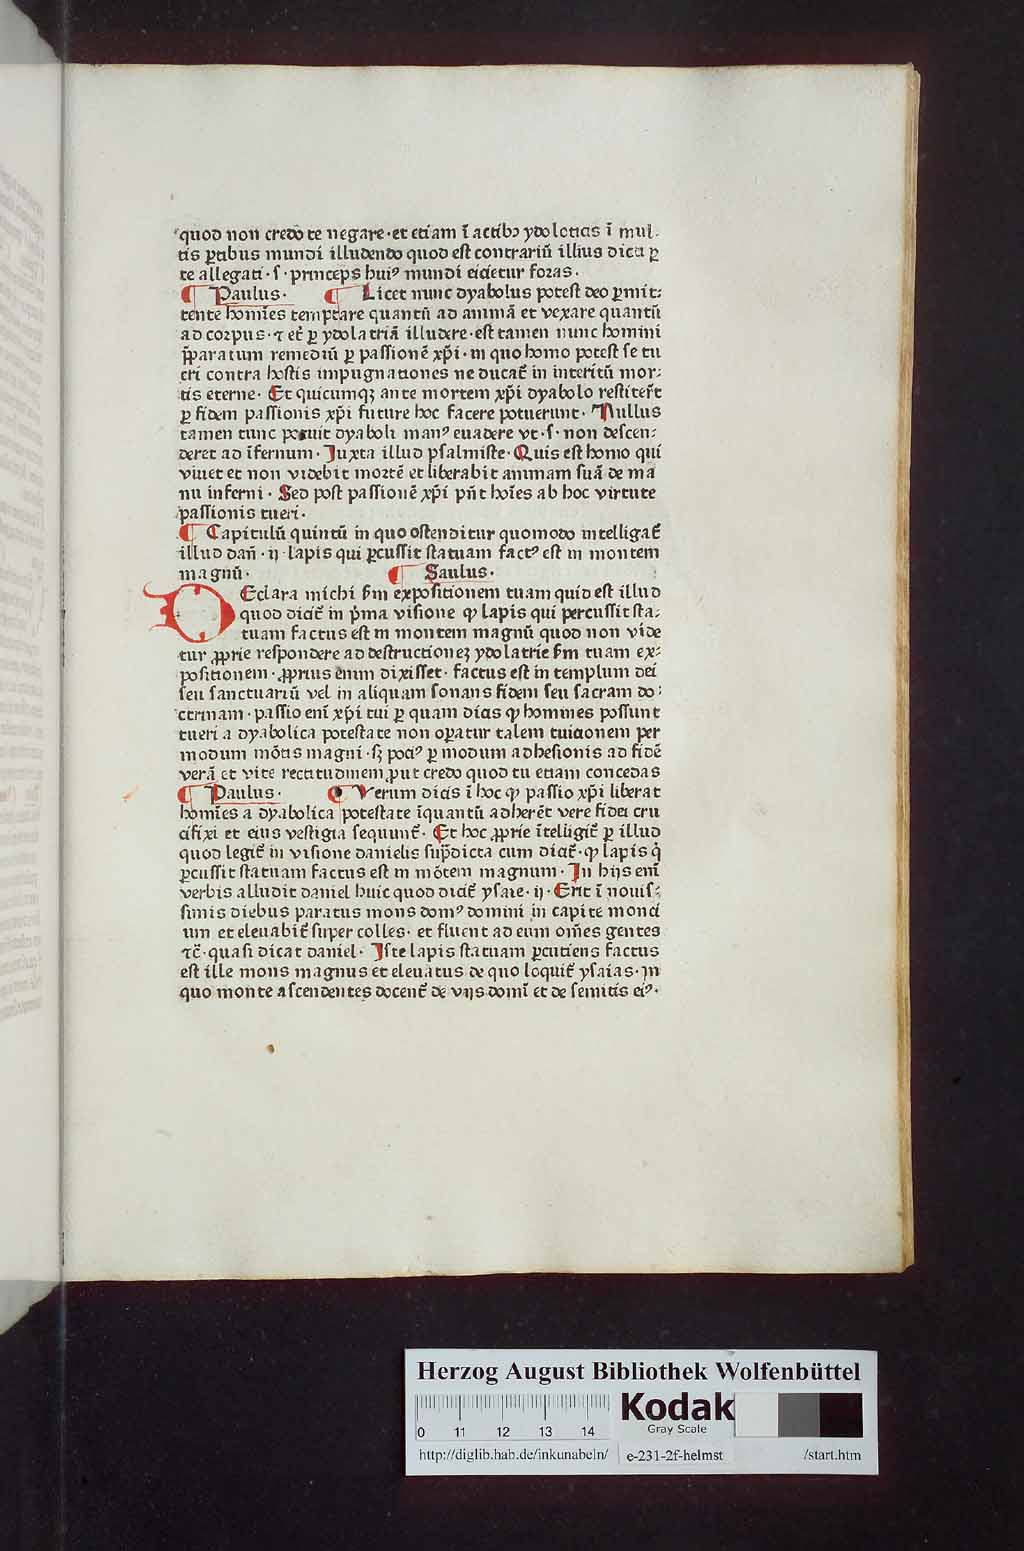 quod non credo te negare · et etiam ī actibꝰ ydolatīcis ī mul⸗
tis ꝑtibus mundi illudendo quod est contrariū illius dicti ꝑ
te allegati · s · princeps huiꝰ mundi eicietur foras ·
¶ Paulus · ¶ Licet nunc dyabolus potest deo ꝑmit⸗
tente homīes temptare quantū ad animā et vexare quantū
ad corpus · ⁊ et̄ ꝑ ydolatriā illudere · est tamen nunc homini
p̄paratum remediū ꝑ passionē xp̄i · in quo homo potest se tu
eri contra hostis impugnationes ne ducat᷑ in interitū mor⸗
tis eterne · Et quicumqꝫ ante mortem xp̄i dyabolo restiter̄t
ꝑ fidem passionis xp̄i future hoc facere potuerunt · Nullus
tamen tunc potuit dyaboli manꝰ euadere vt · s · non descen⸗
deret ad īfernum · Iuxta illud psalmiste · Quis est homo qui
viuet et non videbit mortē et liberabit animam suā de ma
nu inferni · Sed post passionē xp̄i pn̄t hoīes ab hoc virtute
passionis tueri ·
¶ Capitulū quintū in quo ostenditur quomodo intelligat᷑
illud dan̄ · ij · lapis qui ꝑcussit statuam factꝰ est in montem
magnū · ¶ Saulus ·
DEclara michi s̄m expositionem tuam quid est illud
quod dicit᷑ in p̄ma visione ꝙ lapis qui percussit sta⸗
tuam factus est in montem magnū quod non vide
tur ꝓprie respondere ad destructioneꝫ ydolatrie s̄m tuam ex⸗
positionem · ꝓprius enim dixisset · factus est in templum dei
seu sanctuariū vel in aliquam sonans fidem seu sacram do⸗
ctrinam · passio enī xp̄i tui ꝑ quam dicis ꝙ homines possunt
tueri a dyabolica potestate non oꝑatur talem tuicionem per
modum mōtis magni · sꝫ pociꝰ ꝑ modum adhesionis ad fidē
verā et vite rectitudinem ꝓut credo quod tu etiam concedas
¶ Paulus · ¶ Verum dicis ī hoc ꝙ passio xp̄i liberat
homīes a dyabolica potestate īquantū adherēt vere fidei cru
cifixi et eius vestigia sequunt᷑ · Et hoc ꝓprie ītelligit᷑ ꝑ illud
quod legit᷑ in visione danielis sup̄dicta cum dicit᷑ · ꝙ lapis q̇
ꝑcussit statuam factus est in mōtem magnum · In hijs enī
verbis alludit daniel huic quod dicit᷑ ysaie · ij · Erit ī nouis⸗
simis diebus paratus mons domꝰ domini in capite monti
um et eleuabit᷑ super colles · et fluent ad eum om̄es gentes
⁊c̄ · quasi dicat daniel · Iste lapis statuam ꝑcutiens factus
est ille mons magnus et eleuatus de quo loquit᷑ ysaias · in
quo monte ascendentes docent᷑ de vijs domī et de semitis eiꝰ ·
Herzog August Bibliothek Wolfenbüttel
0 11 12 13 14
Kodak
Gray Scale
http://diglib.hab.de/inkunabeln/ e-231-2f-helmst /start.htm